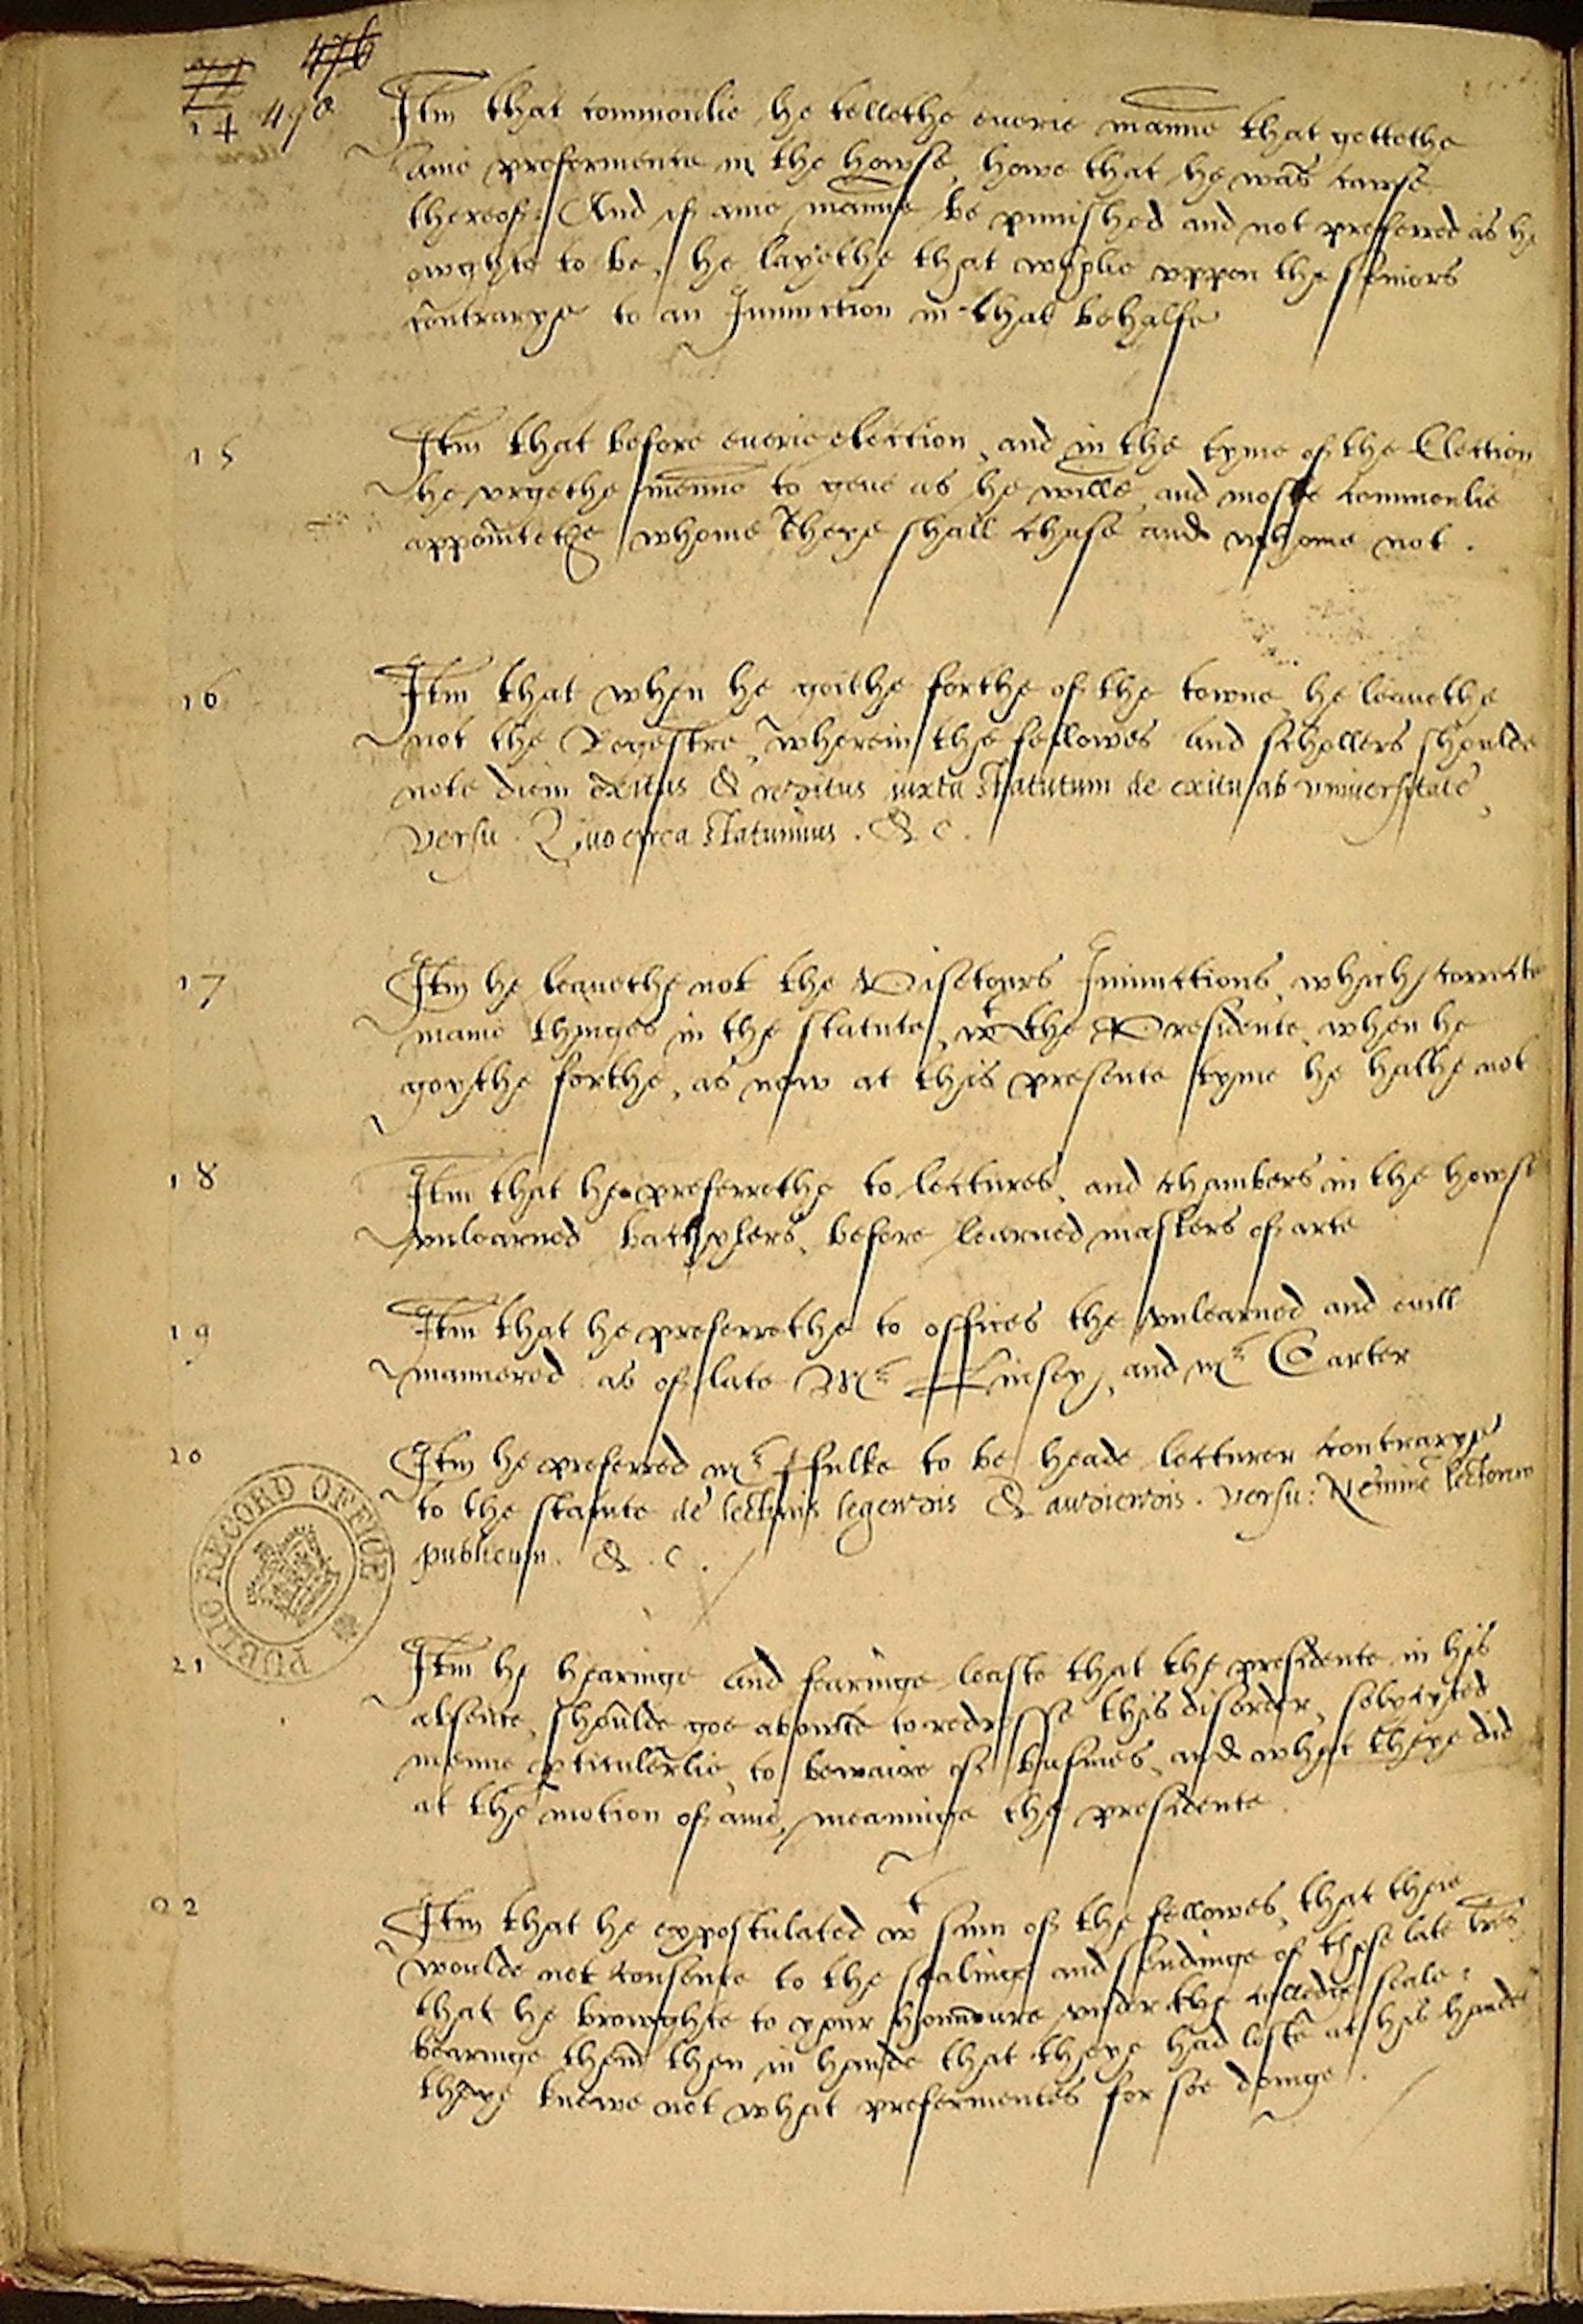 476
14 490 Itm that commonlie he tellethe euerie manne that gettethe
anie prefermente in the howse, howe that he was cawse
thereof: And if anie manne be punished and not preferred as he
owghte to be, he layethe that wholie vppon the seniors
contrarye to an Iniunction in that behalfe
15 Itm that before euerie election, and in the tyme of the Election
he vrgethe menne to geue as he wille, and moste commonlie
appointethe whome theye shall chuse and whome not.
16 Itm that when he goithe forthe of the towne, he leauethe
not the Regestre, wherein the fellowes and schollers shoulde
note diem exitus & reditus iuxta statutum de exitu ab vniuersitate,
versu. Quocirca statuimus. &c.
17 Itm he leauethe not the Visetours Iniunctions, which correcte
manie thinges in the statute, wt the Presidente, when he
goythe forthe, as now at this presente tyme he hathe not
18 Itm that he preferrethe to lectures, and chambers in the howse
vnlearned bachylers, before learned masters of arte
19 Itm that he preferrethe to offices the vnlearned and euill
mannered as of late Mr Linsey, and Mr Carter
20 Itm he preferred Mr ffulke to be heade lecturer contrarye
to the statute de lectoriis legendis & audiendis. versu: Neminē lectorum
publicum. &.c.
21 Itm he hearinge and fearinge leaste that the presidente in his
absence, shoulde goe abowte to redresse this disorder,
menne pticulerlie, to bewaire of busines, and what theye did
at the motion of anie, meaninge the presidente.
22 Itm that he expostulated wt sum of the fellowes, that theie
woulde not consente to the sealinge and sendinge of these late lrēs
that he browghte to your honnoure vnder the colledge seale:
bearinge them then in hande that theye had loste at his hande
theye knewe not what prefermentes for soe doinge.
PUBLIC RECORD OFFICE